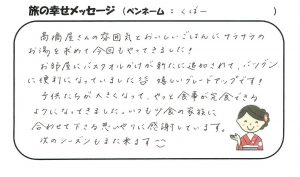 旅の幸せメッセージ（ペンネーム：くぼー）
高橋屋さんの雰囲気とおいしいごはんにサラサラの
お湯を求めて今回もやってきました！
お部屋にバスタオルかけが新たに追加されて、バツグン
に便利になっていました 嬉しいグレードアップです！
子供たちが大きくなって、やっと食事が完食できる
ようになってきました。いつも少食の家族に
合わせて下さる思いやりに感謝しています。
次のシーズンもまた来ます